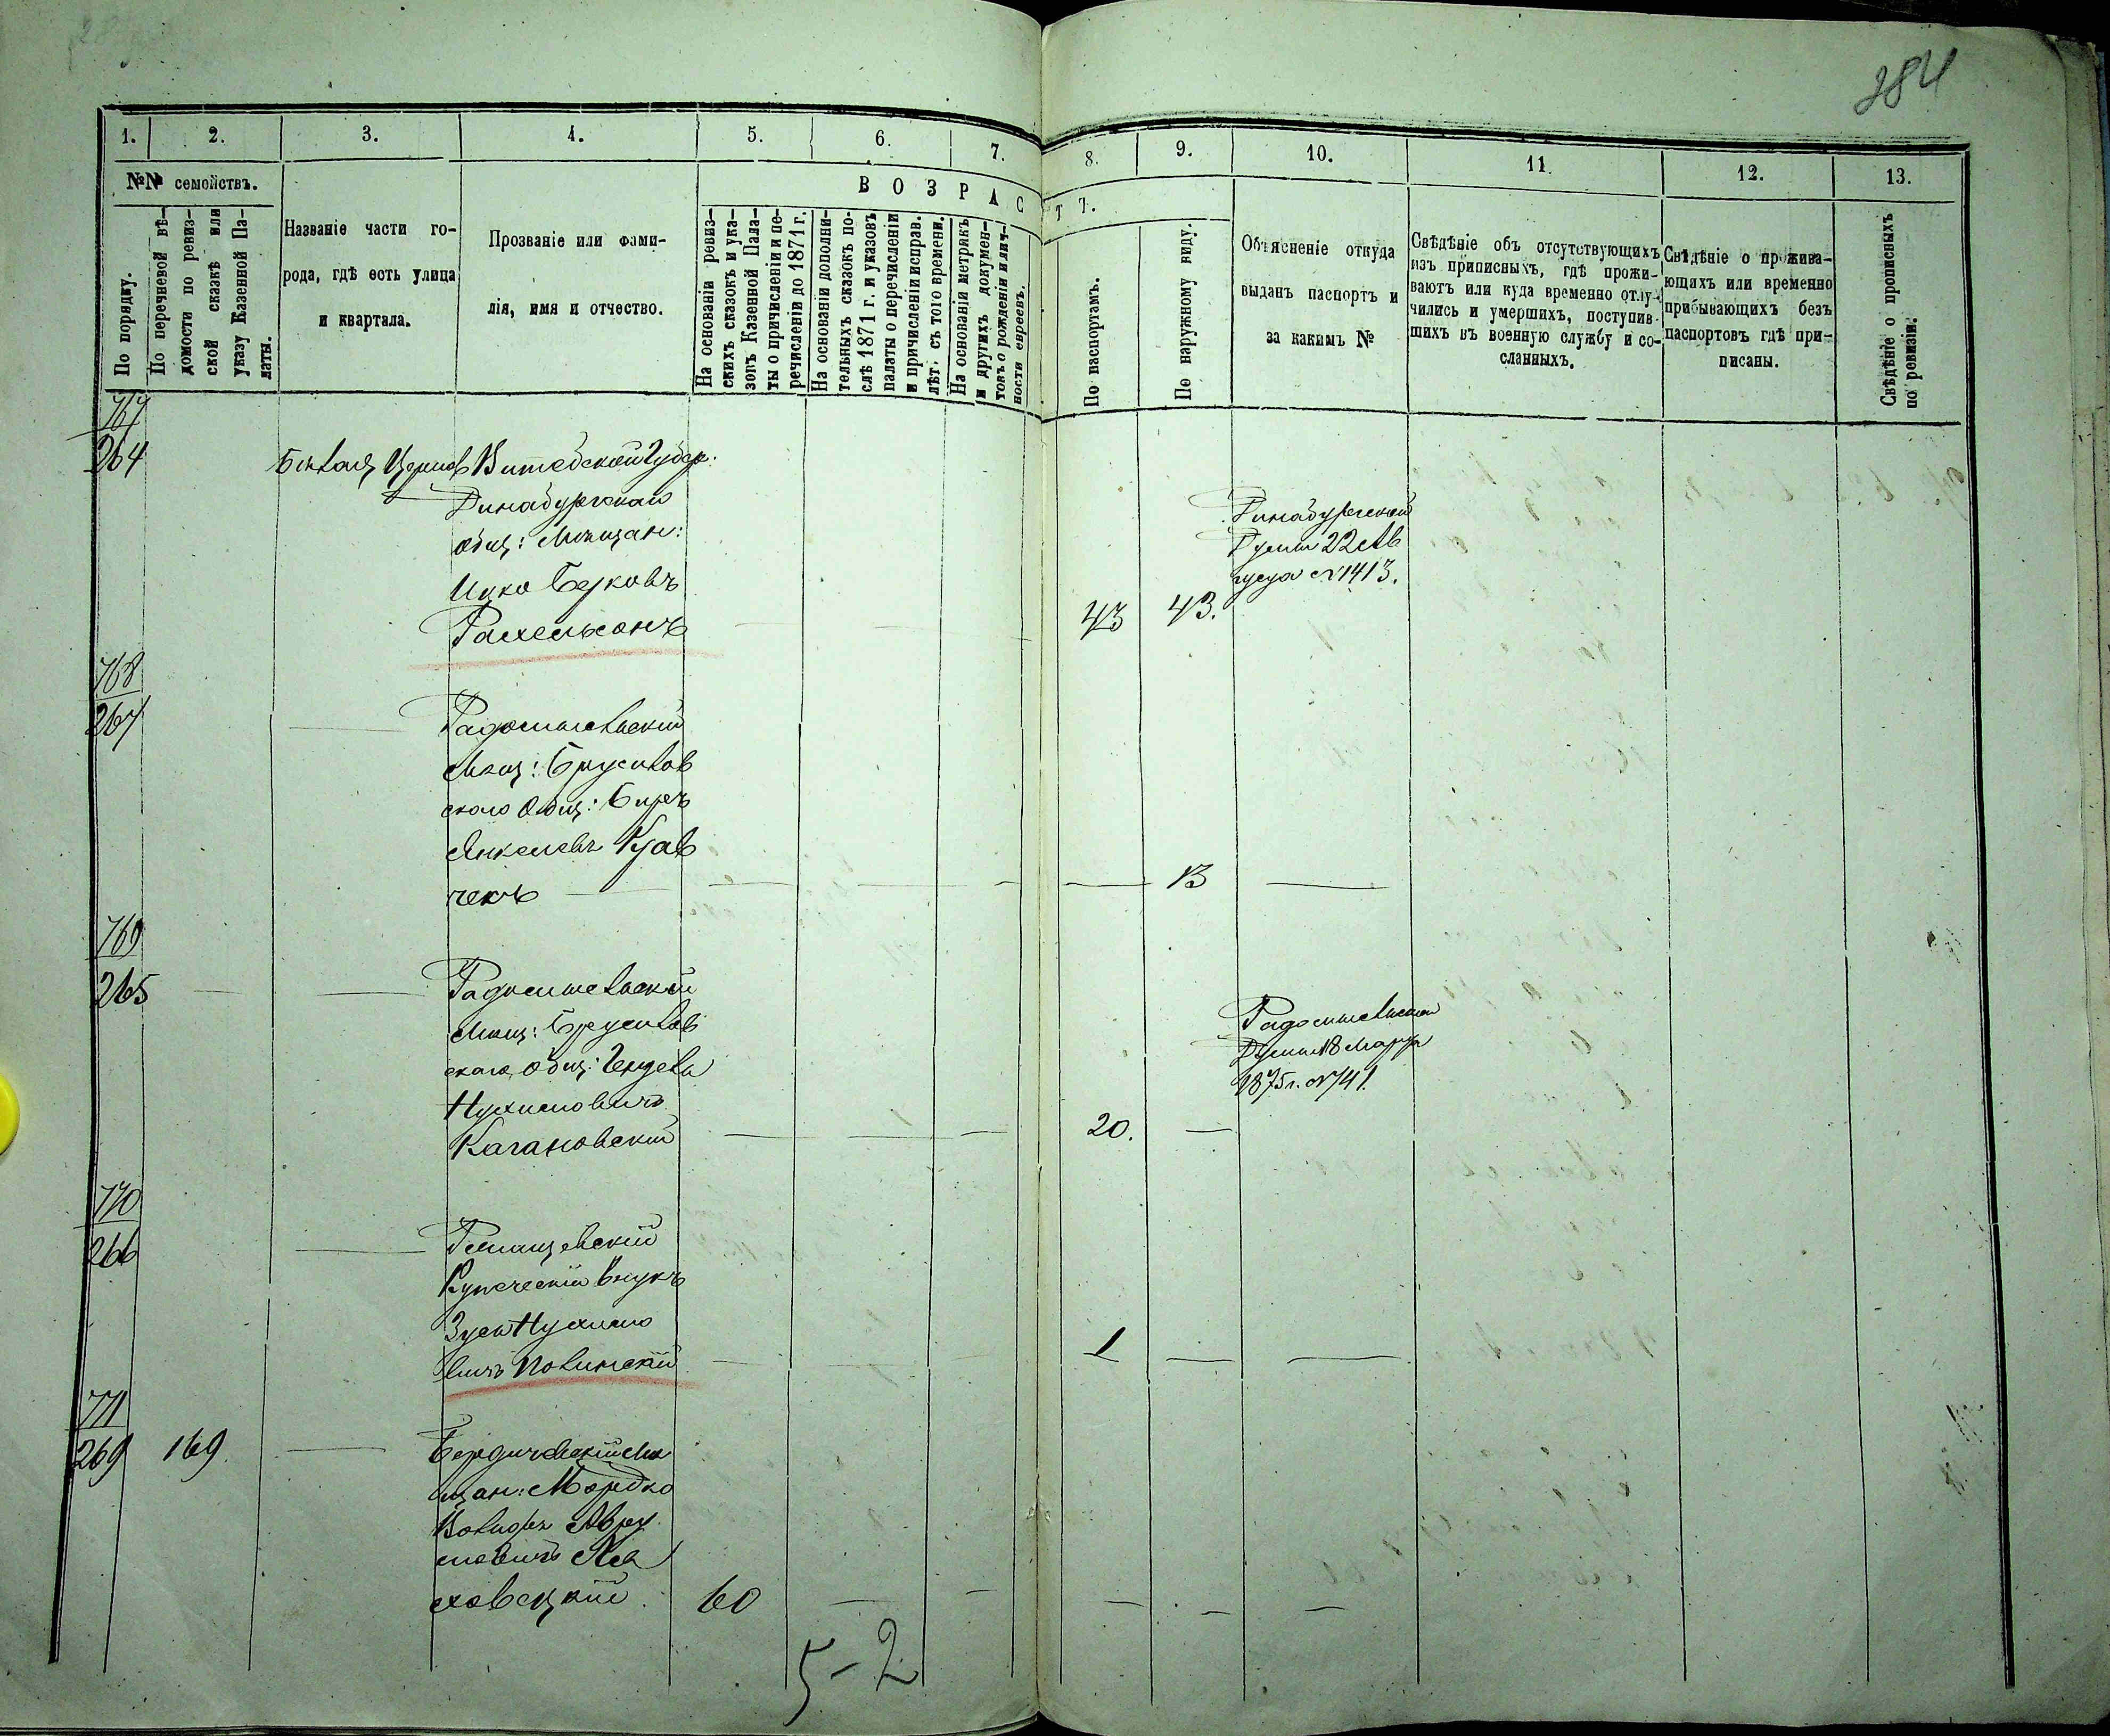 384
1.
2.
3.
4.
5.
6.
7.
8.
9.
10.
11.
12.
13.
№№ семействъ.
По порядку.
По перечневой вѣ-
домости по ревиз-
ской сказкѣ или
указу Казенной Па-
латы.
Названіе части го-
рода, гдѣ есть улица
и квартала.
Прозваніе или фами-
лія, имя и отчество.
ВОЗРАСТЪ.
На основаніи ревиз-
скихъ сказокъ и ука-
зовъ Казенной Пала-
ты о причисленіи и пе-
речисленіи до 1871 г.
На основаніи дополни-
тельныхъ сказокъ по-
слѣ 1871 г. и указовъ
палаты о перечисленіи
и причисленіи исправ.
лѣт. съ того времени.
На основаніи метрикъ
и другихъ докумен-
товъ о рожденіи и лич-
ности евреевъ.
По паспортамъ.
По наружному виду.
Объясненіе откуда
выданъ паспортъ и
за какимъ №
Свѣдѣніе объ отсутствующихъ
изъ приписныхъ, гдѣ прожи-
ваютъ или куда временно отлу-
чились и умершихъ, поступив-
шихъ въ военную службу и со-
сланныхъ.
Свѣдѣніе о прожива-
ющихъ или временно
прибывающихъ безъ
паспортовъ гдѣ при-
писаны.
Свѣдѣніе о прописныхъ
по ревизіи.
767
264
Витебской Губер.
Динабургскаго
общ: Мѣщан:
Ицко Берковъ
Рахельсонъ
43
43.
Динабургской
Думы 22 Ав
густа №1413.
768
267
Радомысльскій
Мѣщ: Брусилов
скаго Общ: Бирхъ
Янкелевъ Крав
чекъ
13
769
265
Радомысльскій
Мѣщ: Брусилов
скаго общ: Гендель
Нухимовичъ
Кагановскій
20.
Радомысльской
Думы 18 Марта
1875 г. №741
770
266
Купеческій внукъ
Зусь Нухимо
вичъ Полинскій
1
771
269
169
Бердичевскій мѣ
щан: Мордко
Вольфъ Авру
мовичъ Ля
ховецкій
60
5-2